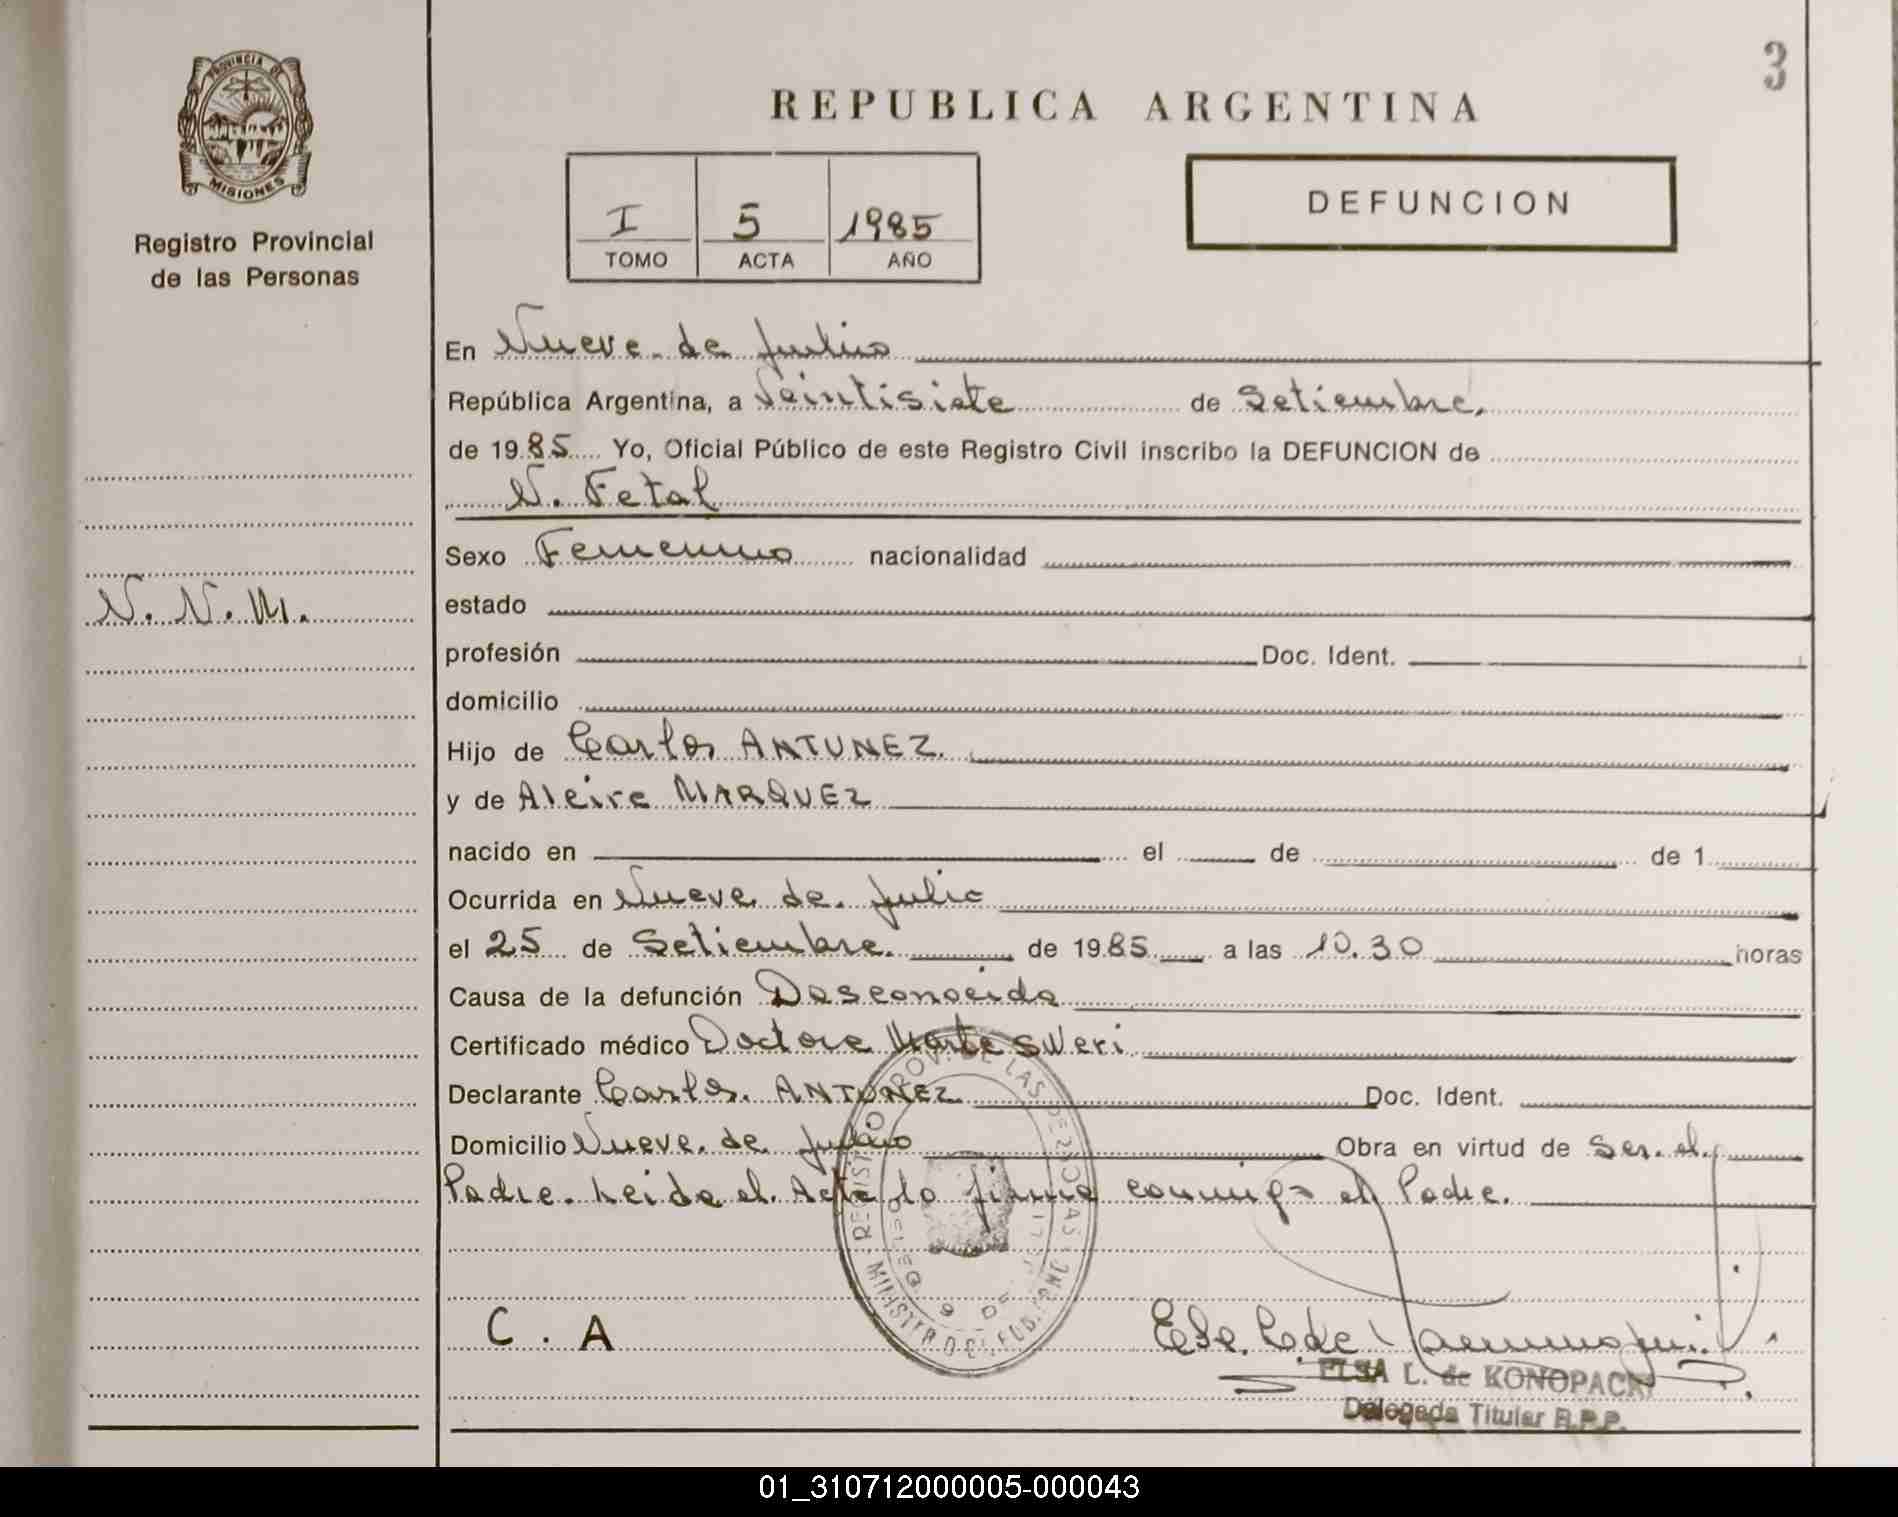 3
PROVINCIA DE
MISIONES
Registro Provincial
de las Personas
REPUBLICA ARGENTINA
I 5 1985
TOMO ACTA AÑO
DEFUNCION
En Nueve de Julio
República Argentina, a Veintisiete de Setiembre.
de 1985 Yo, Oficial Público de este Registro Civil inscribo la DEFUNCION de
N. Fetal
Sexo Femenino nacionalidad
N. N. M.
estado
profesión Doc. Ident.
domicilio
Hijo de Carlos ANTUNEZ.
y de MARQUEZ
nacido en el de de 1
Ocurrida en Nueve de Julio
el 25 de Setiembre. de 1985 a las 10.30 horas
Causa de la defunción Desconocida
Certificado médico Doctora
Declarante Carlos. ANTUNEZ Doc. Ident.
Domicilio Nueve. de Julio Obra en virtud de Ser. el.
Padre. Leida el. Acta la firma conmigo el Padre.
C. A
ELSA L. de KONOPACKI
Delegada Titular R.P.P.
01_310712000005-000043